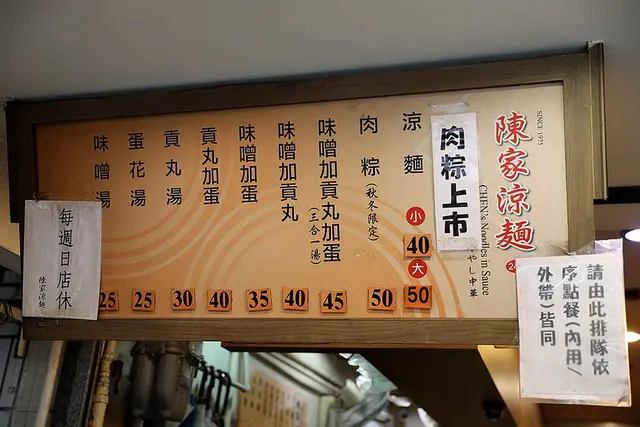 SINCE 1975
陳家涼麵
CHEN's Noodles in Sauce
やし中華
肉粽上市
涼麵
小
40
大
50
肉粽(秋冬限定)
50
味噌加貢丸加蛋
(三合一湯)
45
味噌加貢丸
40
味噌加蛋
35
貢丸加蛋
40
貢丸湯
30
蛋花湯
25
味噌湯
25
每週日店休
陳家涼麵
請由此排隊依
序點餐(內用/
外帶)皆同